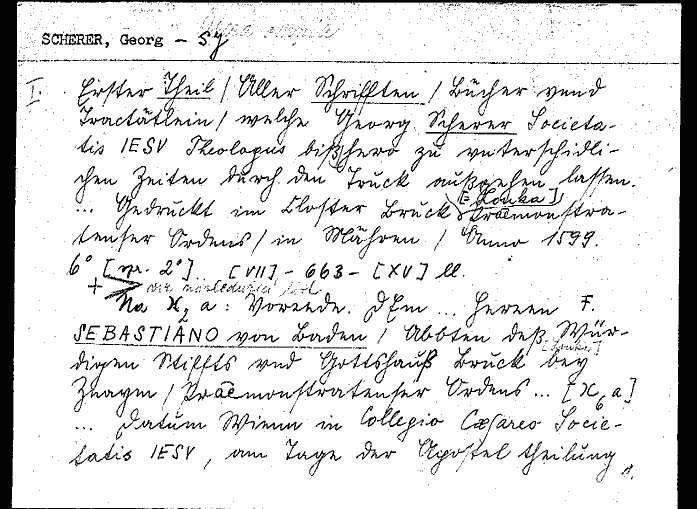 Opera omnia
SCHERER, Georg - SJ
I. Erster Theil / Aller Schrifften / Bücher vnd
Tractätlein / welche Georg Scherer Societa-
tis IESV Theologus bißhero zu vnterschidli-
chen Zeiten durch den Truck außgehen lassen.
[= Louka]
... Gedruckt im Closter Bruck Præmonstra-
tenser Ordens / in Mähren / Anno 1599.
6° [spr. 2°] .. [VII] - 663 - [XV] ll.
+ viz následující list
Na X2 a: Vorrede. Dem ... Herren F.
SEBASTIANO von Baden / Abbten deß Wür-
[Louka]
digen Stiffts vnd Gottshauß Bruck bey
Znaym / Præmonstratenser Ordens ... [X6 a]
... Datum Wienn in Collegio Cæsareo Socie-
tatis IESV, am Tage der Apostel theilung